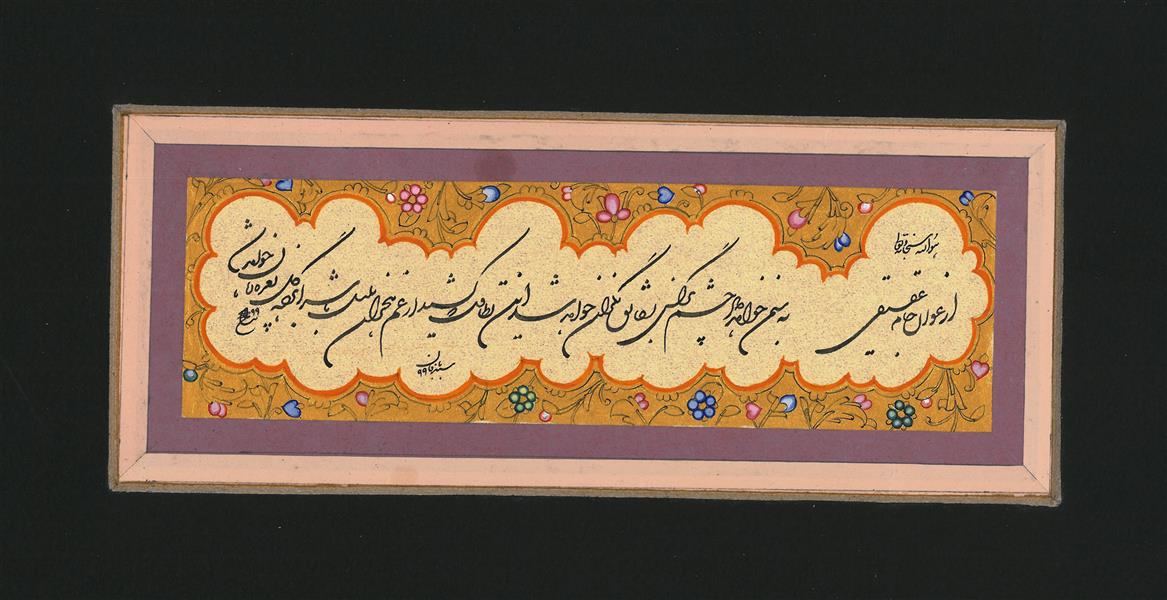 هو الله سبحانه و تعالی
ارغوان جام عقیقی به سمن خواهد داد چشم نرگس به شقایق نگران خواهد شد این تطاول که کشید از غم هجران بلبل تا سراپرده گل نعره زنان خواهد شد
۹۹